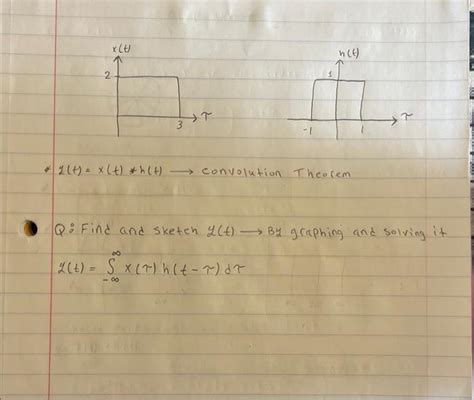 x(t)
2
3
τ
h(t)
1
-1
1
τ
* y(t) = x(t) * h(t) → Convolution Theorem
Q: Find and sketch y(t) → By graphing and solving it
y(t) = ∫_{-∞}^{∞} x(τ) h(t-τ) dτ